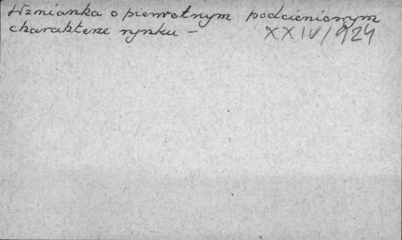 Wzmianka o pierwotnym podcieniowym
charakterze rynku – XXIV/924